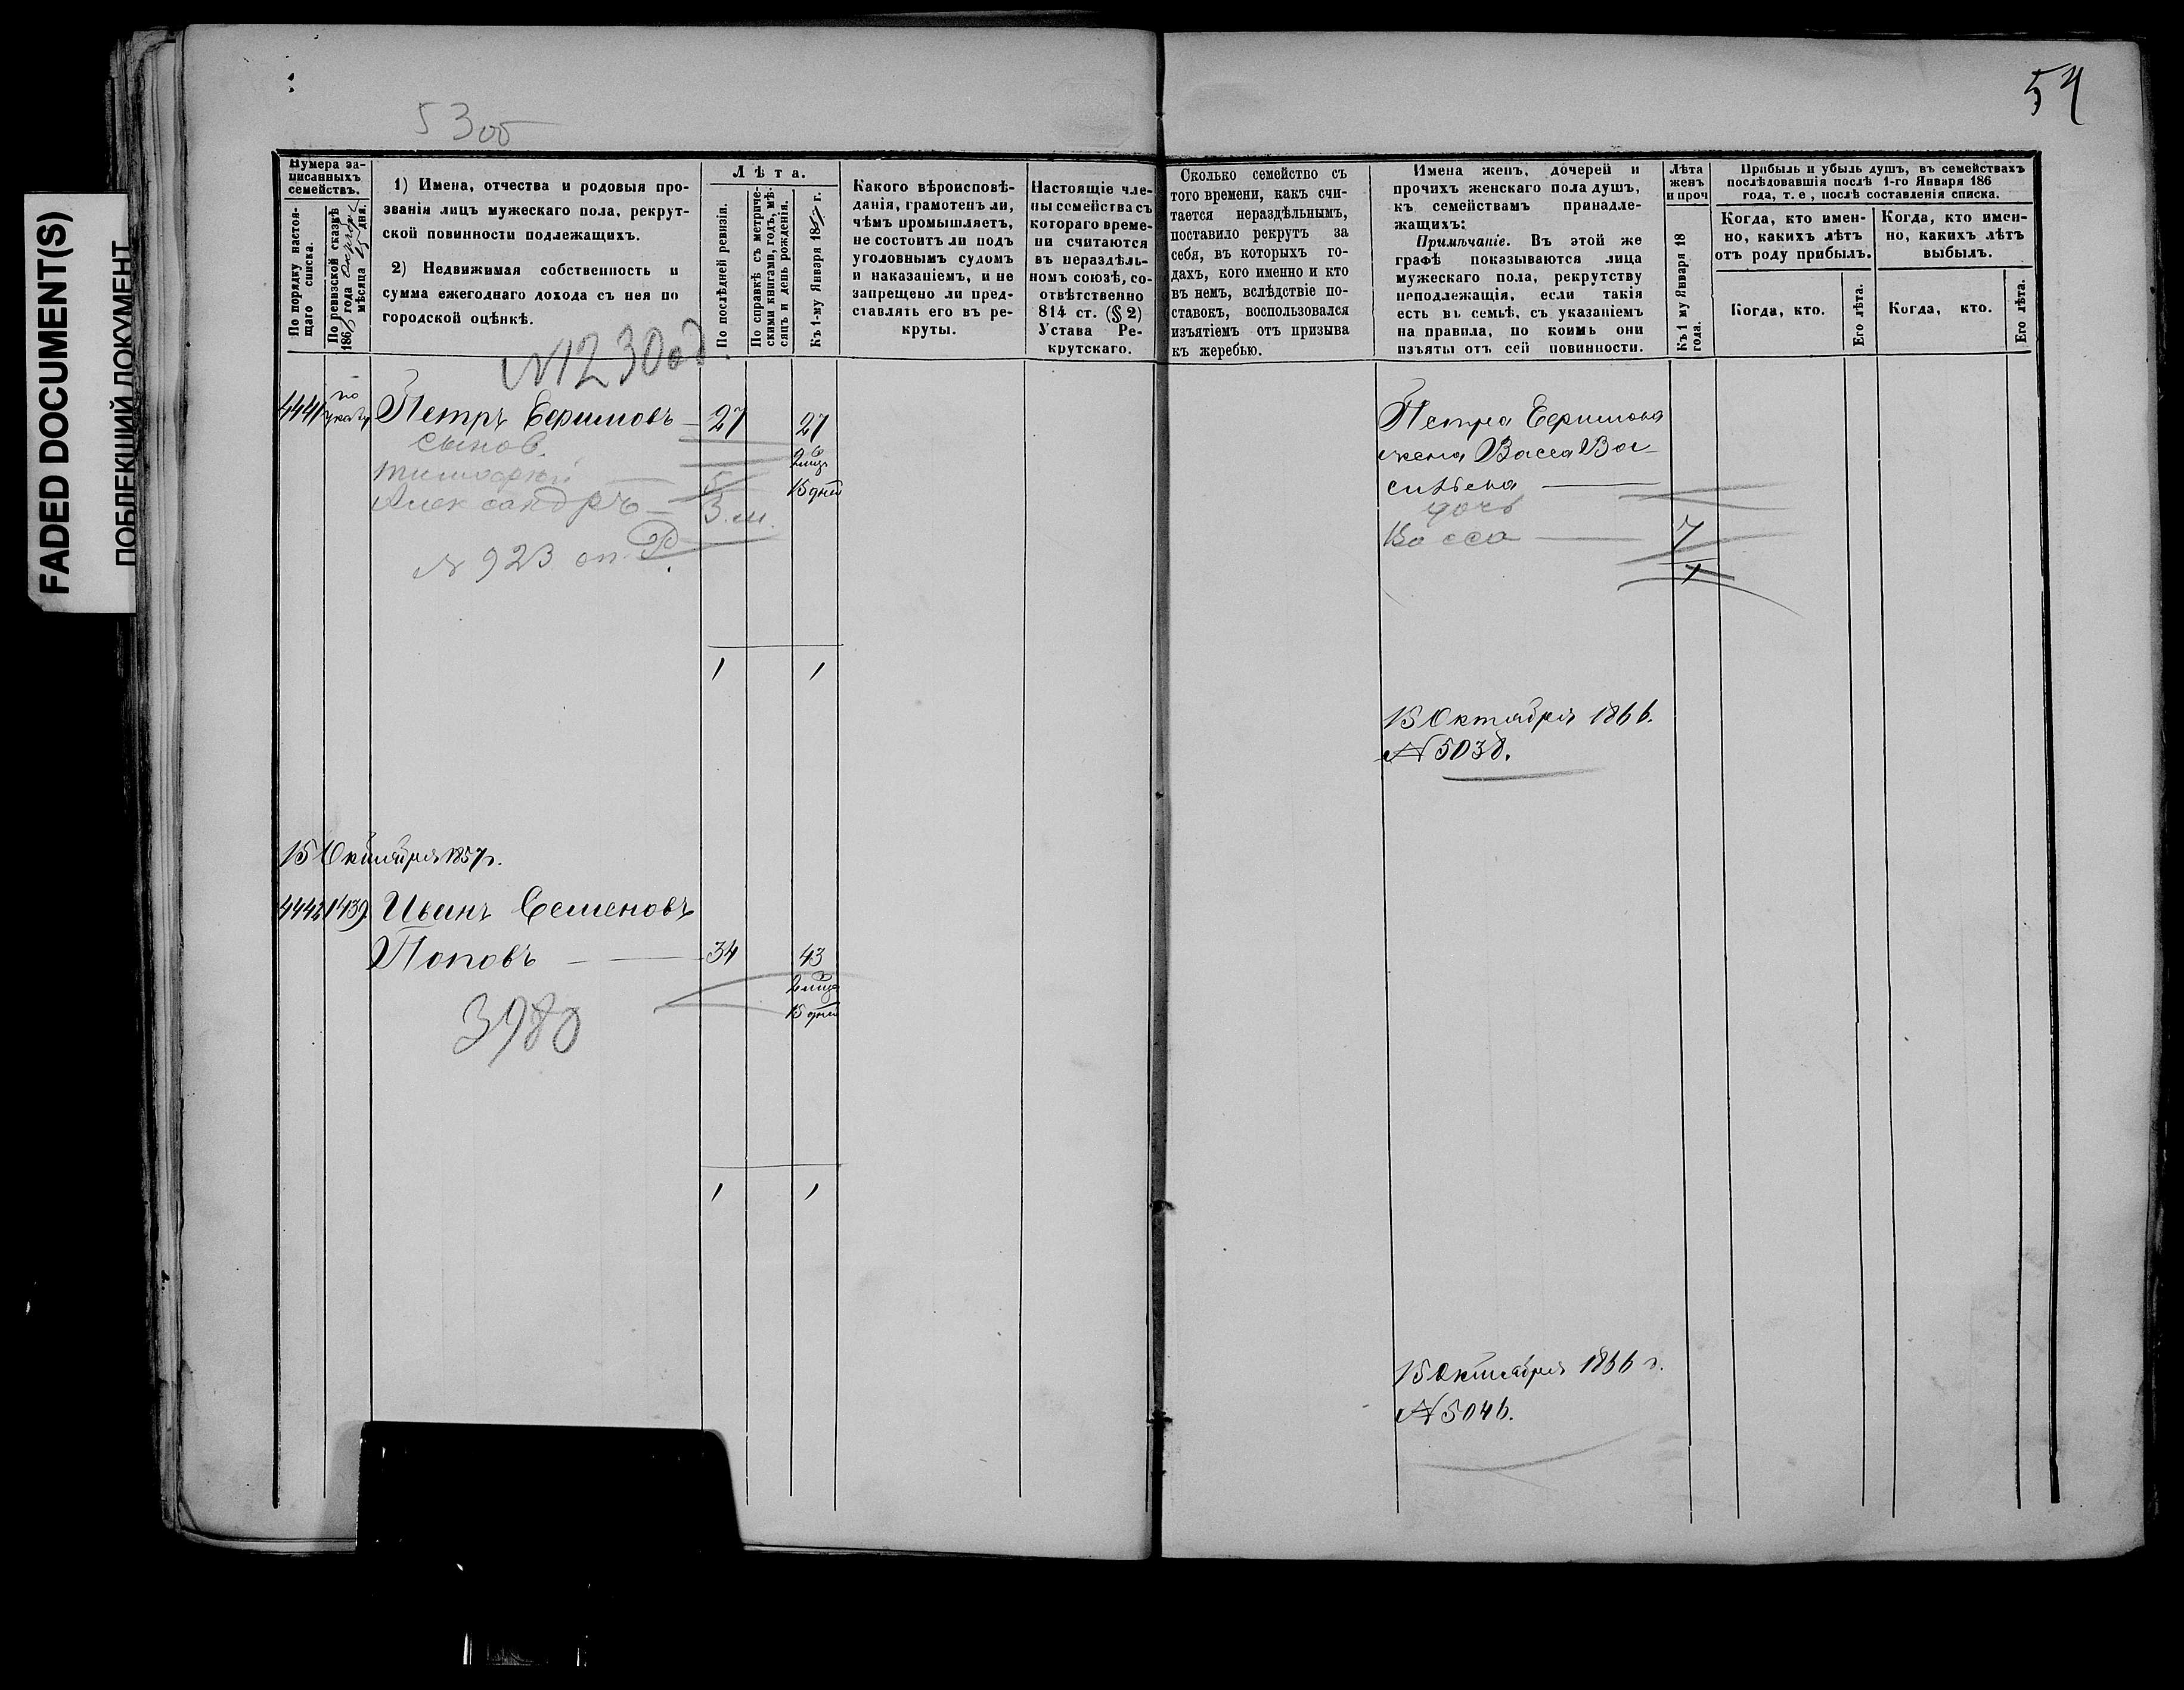 FADED DOCUMENT(S)
ПОБЛЕКШИЙ ДОКУМЕНТ
53об
54
Нумера за-
писанныхъ
семействъ.
По порядку настоя-
щаго списка.
По ревизской сказкѣ
186 года
мѣсяца дня.
1) Имена, отчества и родовыя про-
званія лицъ мужескаго пола, рекрут-
ской повинности подлежащихъ.
2) Недвижимая собственность и
сумма ежегоднаго дохода съ нея по
городской оцѣнкѣ.
Лѣта.
По послѣдней ревизіи.
По справкѣ съ метриче-
скими книгами, годъ, мѣ-
сяцъ и день рожденія.
Къ 1-му Января 18 г.
Какого вѣроисповѣ-
данія, грамотенъ ли,
чѣмъ промышляетъ,
не состоитъ ли подъ
уголовнымъ судомъ
и наказаніемъ, и не
запрещено ли пред-
ставлять его въ ре-
круты.
Настоящіе чле-
ны семейства съ
котораго време-
ни считаются
въ нераздѣль-
номъ союзѣ, со-
отвѣтственно
814 ст. (§ 2)
Устава Ре-
крутскаго.
Сколько семейство съ
того времени, какъ счи-
тается нераздѣльнымъ,
поставило рекрутъ за
себя, въ которыхъ го-
дахъ, кого именно и кто
въ немъ, вслѣдствіе по-
ставокъ, воспользовался
изъятіемъ отъ призыва
къ жеребью.
Имена женъ, дочерей и
прочихъ женскаго пола душъ,
къ семействамъ принадле-
жащихъ:
Примѣчаніе. Въ этой же
графѣ показываются лица
мужескаго пола, рекрутству
неподлежащія, если такія
есть въ семьѣ, съ указаніемъ
на правила, по коимъ они
изъяты отъ сей повинности.
Лѣта
женъ
и проч
Къ 1 му Января 18
года.
Прибыль и убыль душъ, въ семействахъ
послѣдовавшія послѣ 1-го Января 186
года, т. е, послѣ составленія списка.
Когда, кто имен-
но, какихъ лѣтъ
отъ роду прибылъ.
Когда, кто имен-
но, какихъ лѣтъ
выбылъ.
Когда, кто.
Его лѣта.
Когда, кто.
Его лѣта.
№ 1230
4441 по указу Петръ Ефимовъ 27 27
сынов. 2 мца
Тимофей 5 15 дней
Александръ 3 м.
№ 923
1 1
Петра Ефимова
жена Васса Ва-
сильева
дочь
Васса 7
1
15 Октября 1866.
№ 5038.
15 Октября 1857 г.
4442 1439 Иванъ Семеновъ
Поповъ 34 43
2 мца
15 дней
3980
1 1
15 Октября 1866 г.
№ 5046.